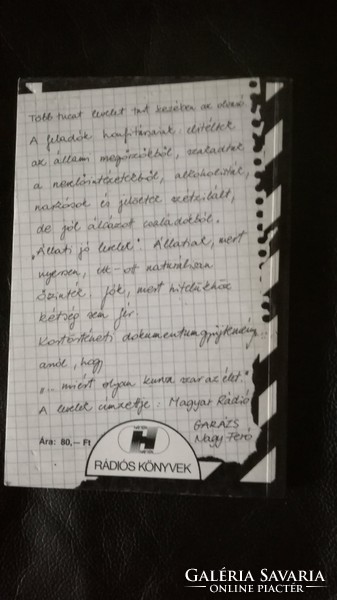 Több tucat levelet tart kezében az olvasó.
A feladók honfitársaink: elítéltek
az állam megőrzőkből, szabadultak
a nevelőintézetekből, alkoholisták,
narkósok és jelesebb szétzilált,
de jól álcázott családokból.
"Állati jó levelek". Állatiak, mert
nyersen, itt-ott naturálisan
őszinték. Jók, mert hitelükhöz
kétség sem fér.
Kortörténeti dokumentumgyűjtemény
arról, hogy
"... miért olyan kurva szar az élet."
A levelek címzettje: Magyar Rádió
GARÁZS
Nagy Feró
Ára: 80,— Ft
H
RÁDIÓS KÖNYVEK
GALÉRIA SAVARIA
ONLINE PIACTÉR